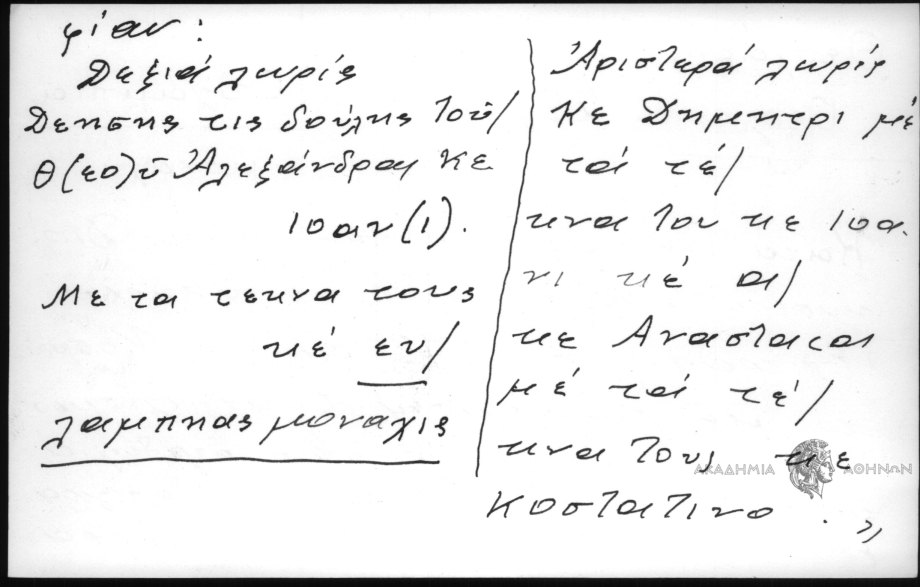 φίαν:
Δεξιά χωρίς
Δεησης τις δούλης τοῦ/
Θ(εο)ῦ Ἀλεξάνδρας κε
ιοαν(ι).
Με τα τεκνα τους
κέ ευ/
λαμπηας μοναχις
Ἀριστερά χωρίς
κε Δημητρι μέ
τά τέ/
κνα του κε ιοα.
νι κέ α/
κε Αναστασα
μέ τά τέ/
κνα τους κε
κοστατινο . »
ΑΚΑΔΗΜΙΑ ΑΘΗΝΩΝ